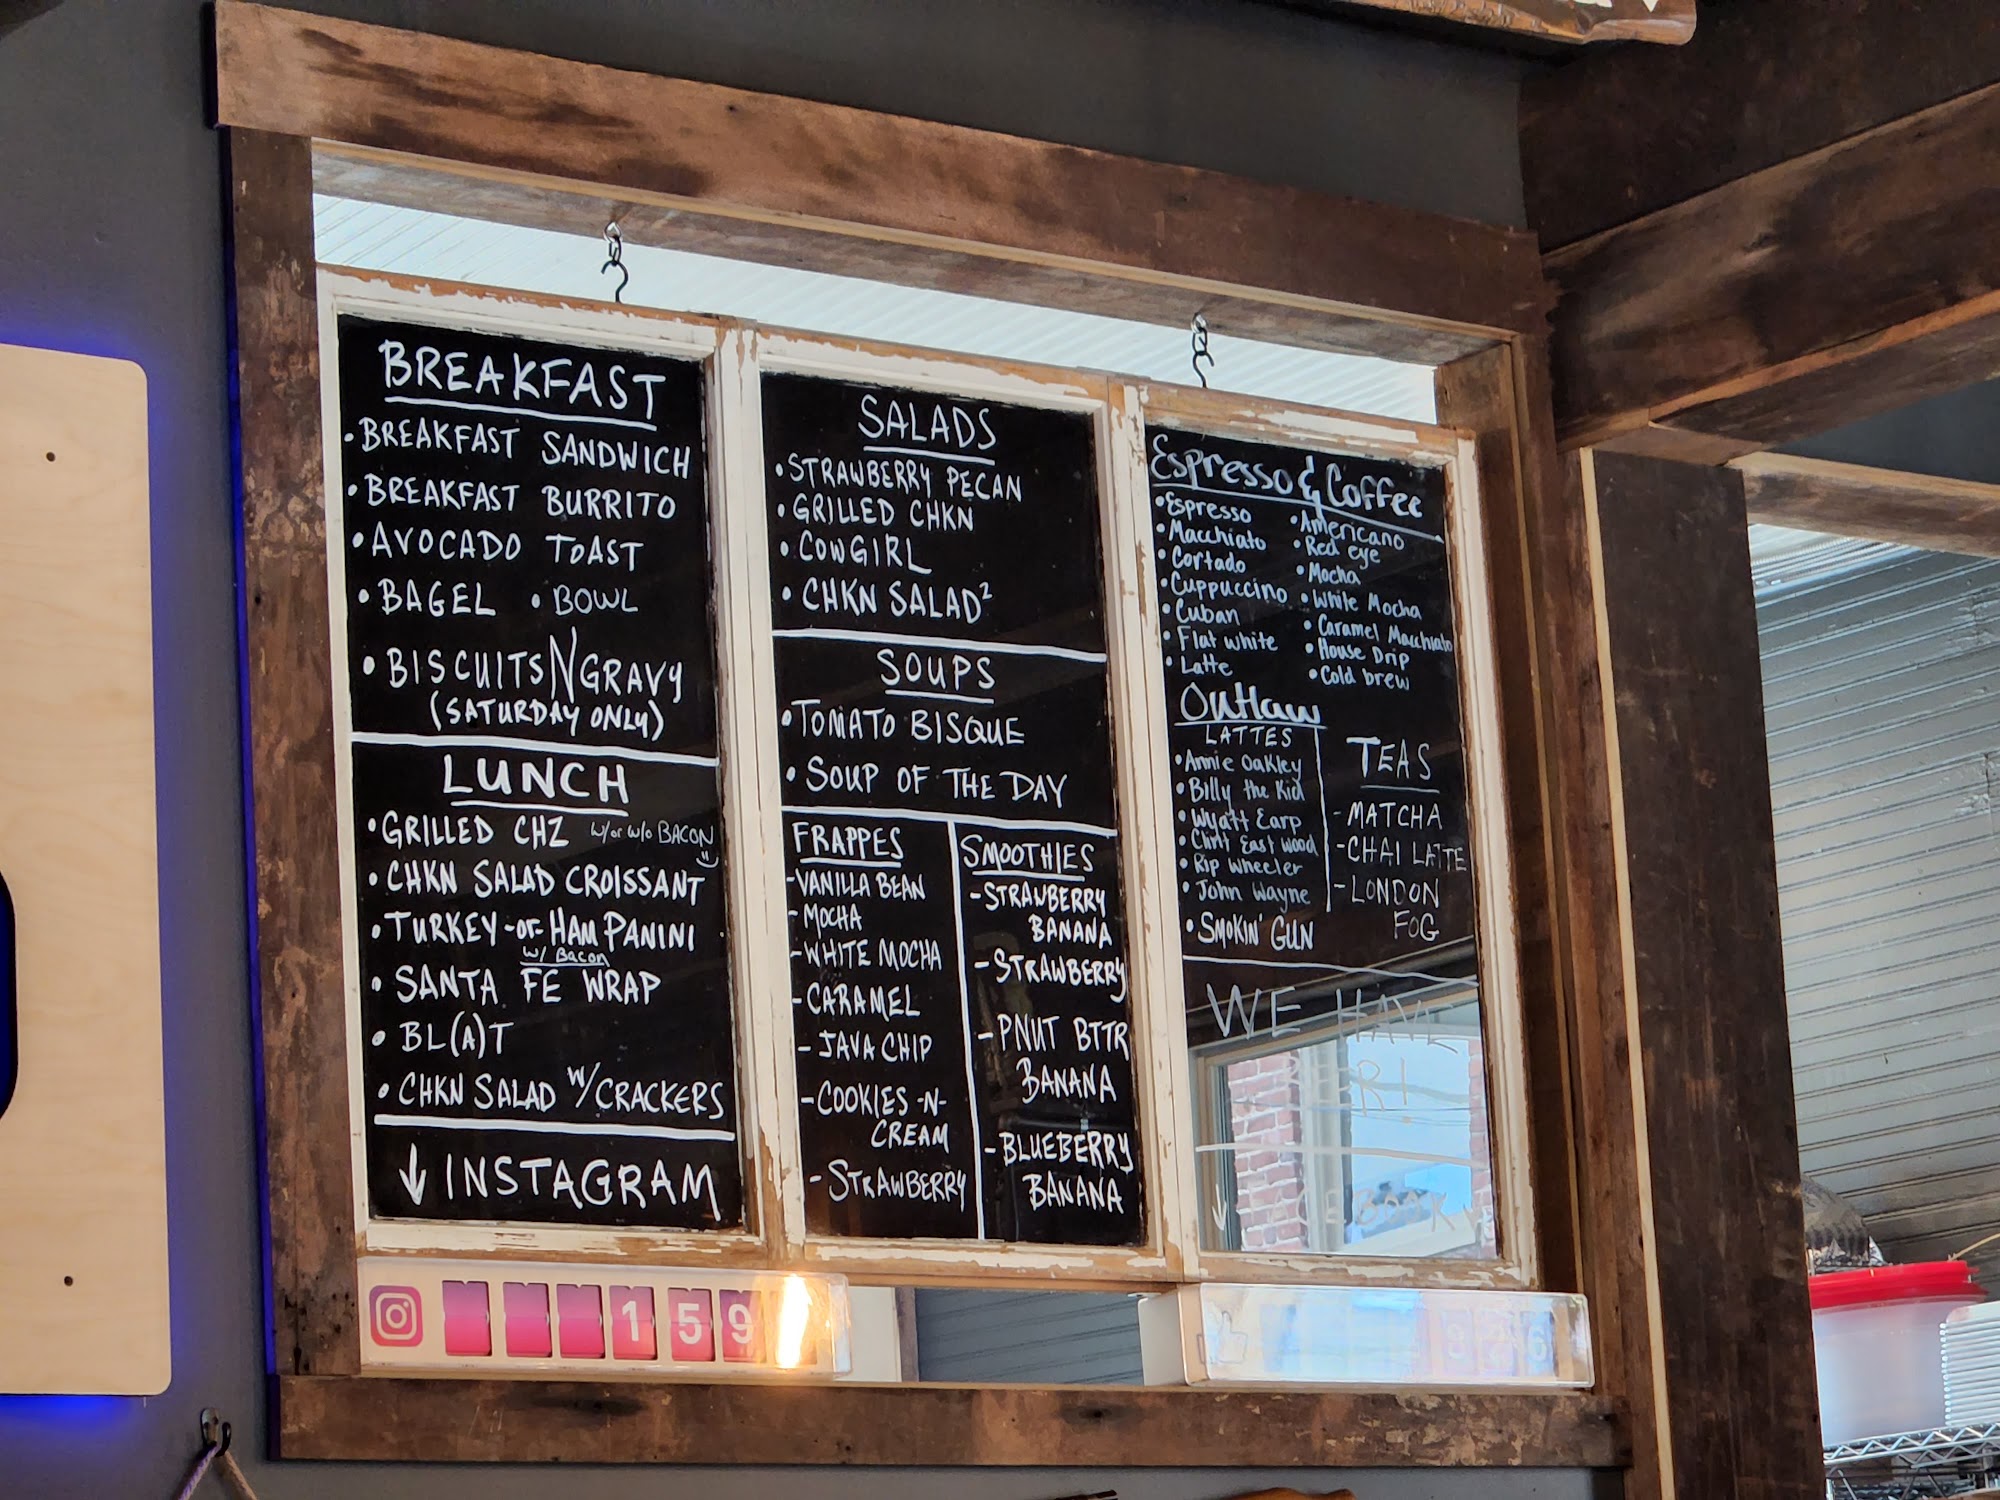 BREAKFAST
• BREAKFAST SANDWICH
• BREAKFAST BURRITO
• AVOCADO TOAST
• BAGEL • BOWL
• BISCUITS N GRAVY
(SATURDAY ONLY)
LUNCH
• GRILLED CHZ w/or w/o BACON
• CHKN SALAD CROISSANT
• TURKEY -or- HAM PANINI
w/ Bacon
• SANTA FE WRAP
• BL(A)T
• CHKN SALAD W/CRACKERS
↓ INSTAGRAM
159
SALADS
• STRAWBERRY PECAN
• GRILLED CHKN
• COWGIRL
• CHKN SALAD²
SOUPS
• TOMATO BISQUE
• SOUP OF THE DAY
FRAPPES
- VANILLA BEAN
- MOCHA
- WHITE MOCHA
- CARAMEL
- JAVA CHIP
- COOKIES -N-
CREAM
- STRAWBERRY
SMOOTHIES
- STRAWBERRY
BANANA
- STRAWBERRY
- PNUT BTTR
BANANA
- BLUEBERRY
BANANA
Espresso & Coffee
• Espresso
• Macchiato
• Cortado
• Cuppuccino
• Cuban
• Flat white
• Latte
• Americano
• Red eye
• Mocha
• White Mocha
• Caramel Macchiato
• House Drip
• Cold brew
Outlaw
LATTES
• Annie Oakley
• Billy the Kid
• Wyatt Earp
• Clint East wood
• Rip Wheeler
• John Wayne
• SMOKIN' GUN
TEAS
- MATCHA
- CHAI LATTE
- LONDON
FOG
WE HAVE
↓ FACEBOOK
326